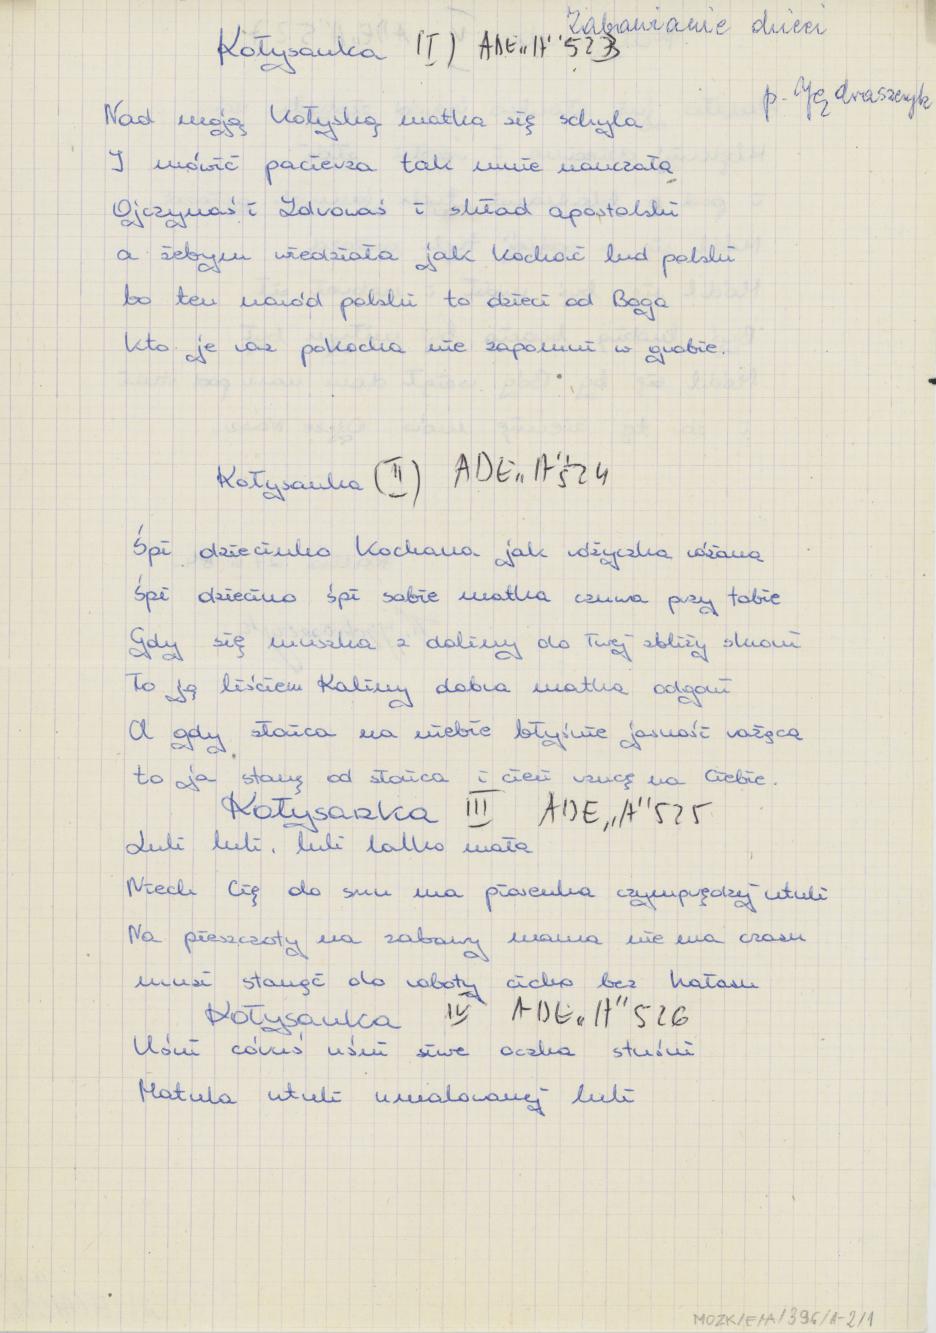 Zabawianie dzieci
Kołysanka (I) ADE „A” 523
p. Jędraszczyk
Nad moją kołyską matka się schyla
I mówić pacierza tak mnie nauczała
Ojczynaś i Zdrowaś i skład apostolski
a żebym wiedziała jak kochać lud polski
bo ten naród polski to dzieci od Boga
kto je raz pokocha nie zapomni w grobie.
Kołysanka (II) ADE „A” 524
Śpi dziecinko kochana jak różyczka różana
Śpi dziecino śpi sobie matka czuwa przy tobie
Gdy się muszka z doliny do Twej zbliży skroni
To ją liściem kaliny dobra matka odgoni
A gdy słońca na niebie błyśnie jasność rażąca
to ja stanę od słońca i cień rzucę na Ciebie.
Kołysanka III ADE „A” 525
Luli luli, luli lalko mała
Niech Cię do snu ma piosenka czymprędzej utuli
Na pieszczoty na zabawy mama nie ma czasu
musi stanąć do roboty cicho bez hałasu
Kołysanka IV ADE „A” 526
Uśni córuś uśni siwe oczka stuśni
Matula utuli umalowanej luli
MOZK/E/A/396/A-2/1